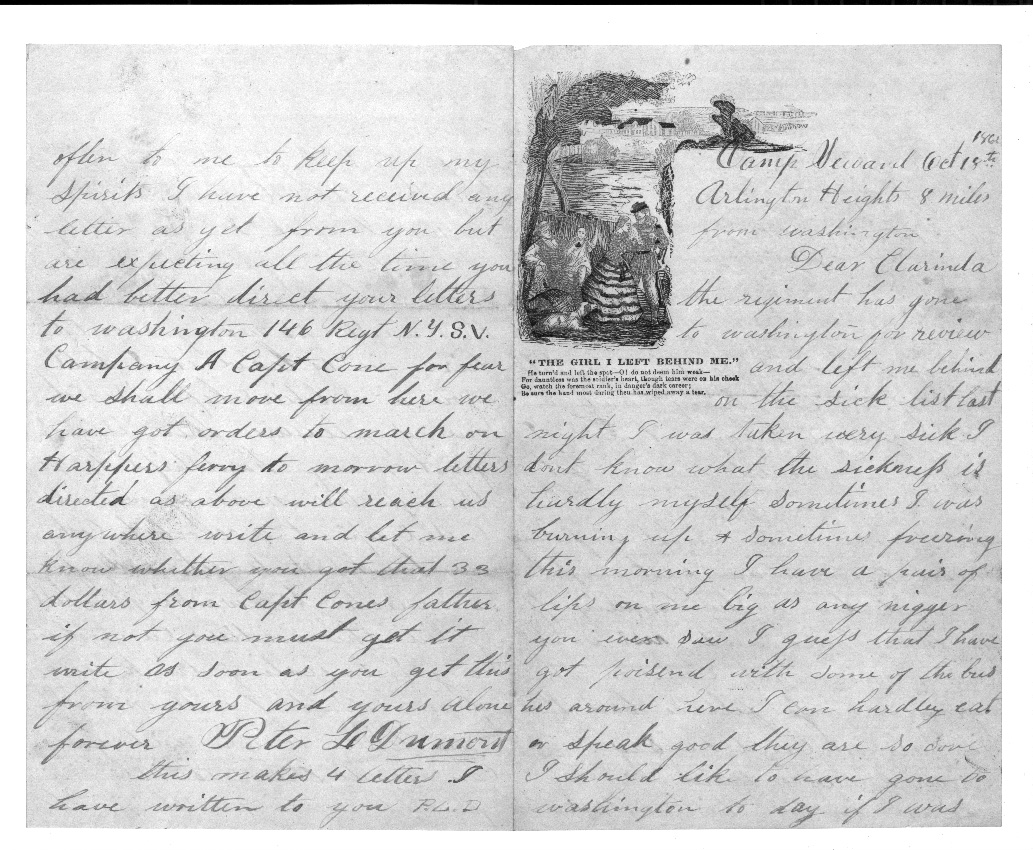 often to me to keep up my
spirits I have not received any
letter as yet from you but
are expecting all the time you
had better direct your letters
to washington 146 Regt N.Y.S.V.
Company A Capt Cone for fear
we shall move from here we
have got orders to march on
Harppers ferry to morrow letters
directed as above will reach us
anywhere write and let me
know whether you got that 33
dollars from Capt Cones father
if not you must get it
write as soon as you get this
from yours and yours alone
forever Peter L Dumont
this makes 4 letter I
have written to you P.L.D
186
Camp Seward Oct 18th
Arlington Heights 8 miles
from washington
Dear Clarinda
the regiment has gone
to washington for review
and left me behind
on the sick list last
"THE GIRL I LEFT BEHIND ME."
He turn'd and left the spot—O! do not deem him weak—
For dauntless was the soldier's heart, though tears were on his cheek
Go, watch the foremost rank, in danger's dark career;
Be sure the hand most daring there has wiped away a tear.
night I was taken very sick I
dont know what the sickness is
hardly myself sometimes I was
burning up & sometime freezing
this morning I have a pair of
lips on me big as any nigger
you ever saw I guess that I have
got poisend with some of the bus
hes around here I can hardley eat
or speak good they are so sore
I should lik to have gone to
washington to day if I was